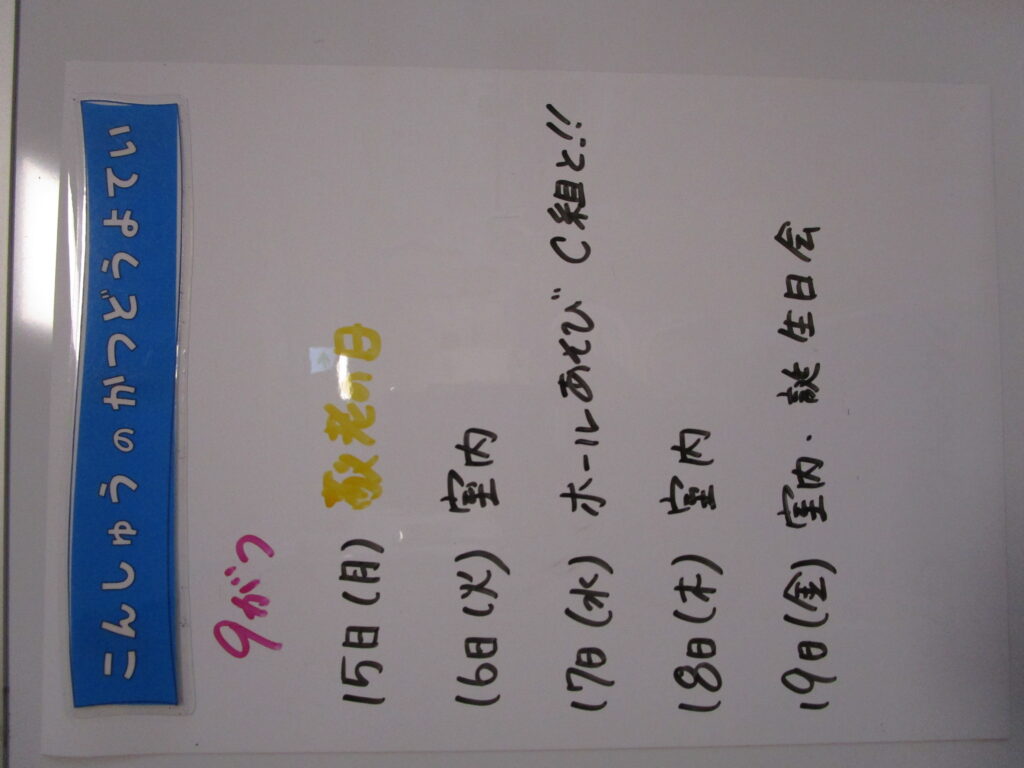 こんしゅうのかつどうよてい
9がつ
15日(月) 敬老の日
16日(火) 室内
17日(水) ホールあそび C組と!!
18日(木) 室内
19日(金) 室内・誕生日会